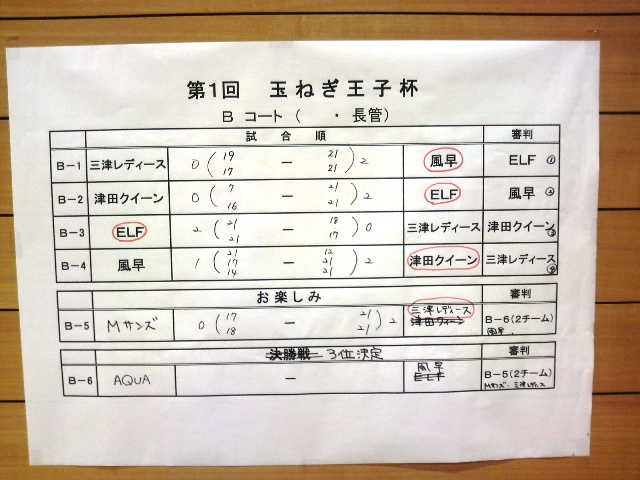 第1回 玉ねぎ王子杯
B コート ( ・ 長管)
試 合 順 審判
B-1 三津レディース 0 ( 19 17 — 21 21 ) 2 風早 ELF ①
B-2 津田クイーン 0 ( 7 16 — 21 21 ) 2 ELF 風早 ②
B-3 ELF 2 ( 21 21 — 18 17 ) 0 三津レディース 津田クイーン ③
B-4 風早 1 ( 21 17 14 — 12 21 21 ) 2 津田クイーン 三津レディース ④
お楽しみ 審判
B-5 Mサンズ 0 ( 17 18 — 21 21 ) 2 三津レディース 津田クィーン B-6(2チーム) 風早
決勝戦 3位決定 審判
B-6 AQUA — 風早 ELF B-5(2チーム) Mサンズ・三津レディース